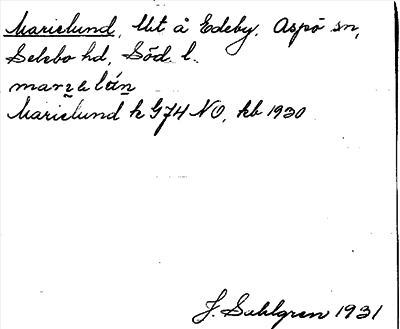 Marielund, lht å Edeby, Aspö sn,
Selebo hd, Söd. l.
marielún
Marielund k G74 NO, kb 1930
J. Sahlgren 1931